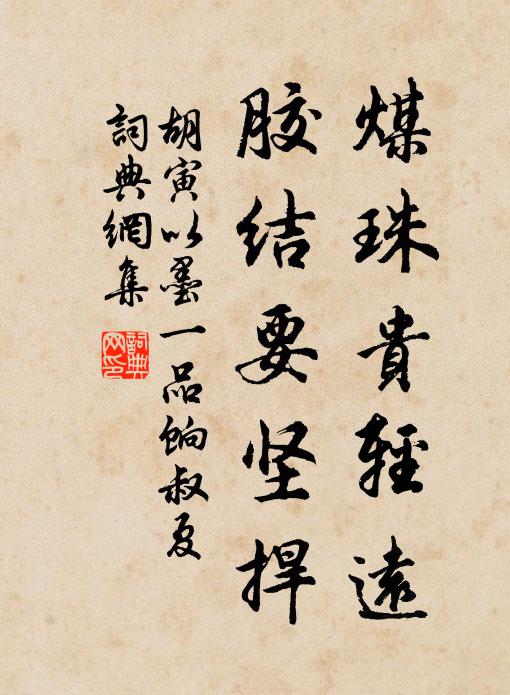 煤珠貴輕遠
胶结要坚捍
胡寅以墨一品餉叔夏
詞典網集
詞典網印